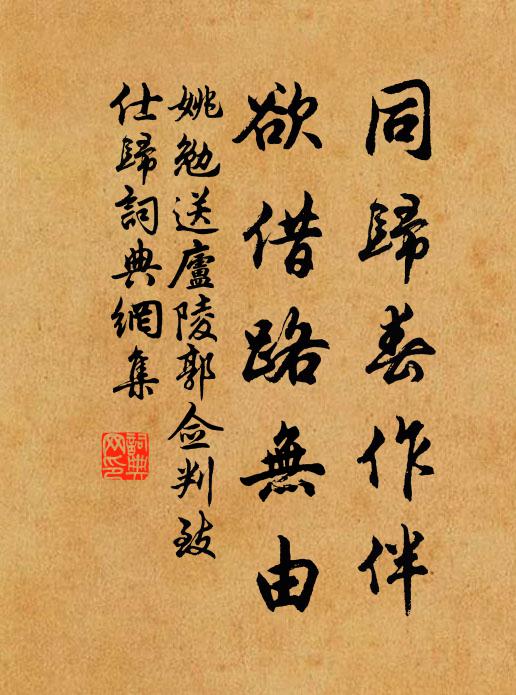 同歸春作伴
欲借路無由
姚勉送廬陵郭僉判致
仕歸詞典網集
詞典網印